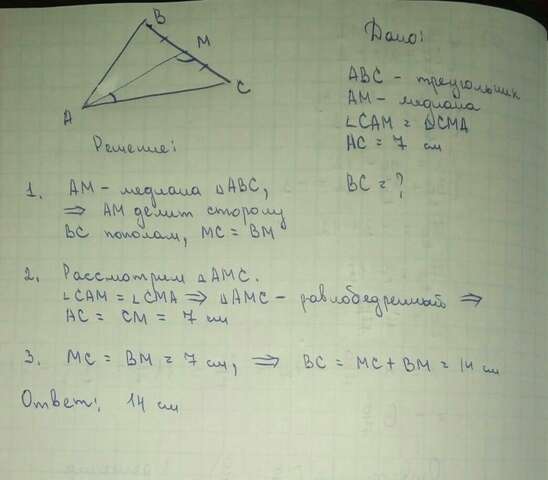 B
M
C
A
Дано:
ABC - треугольник
AM - медиана
∠CAM = ∠CMA
AC = 7 см
BC = ?
Решение:
1. AM - медиана △ABC,
⇒ AM делит сторону
BC пополам, MC = BM
2. Рассмотрим △AMC.
∠CAM = ∠CMA ⇒ △AMC - равнобедренный ⇒
AC = CM = 7 см
3. MC = BM = 7 см, ⇒ BC = MC + BM = 14 см
Ответ: 14 см